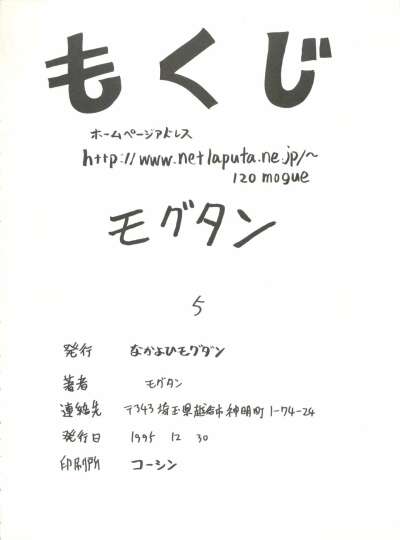 もくじ
ホームページアドレス
http://www.netlaputa.ne.jp/~
120 mogue
モグタン
5
発行 なかよひモグダン
著者 モグタン
連絡先 〒343 埼玉県越谷市神明町 1-74-24
発行日 1995 12 30
印刷所 コーシン